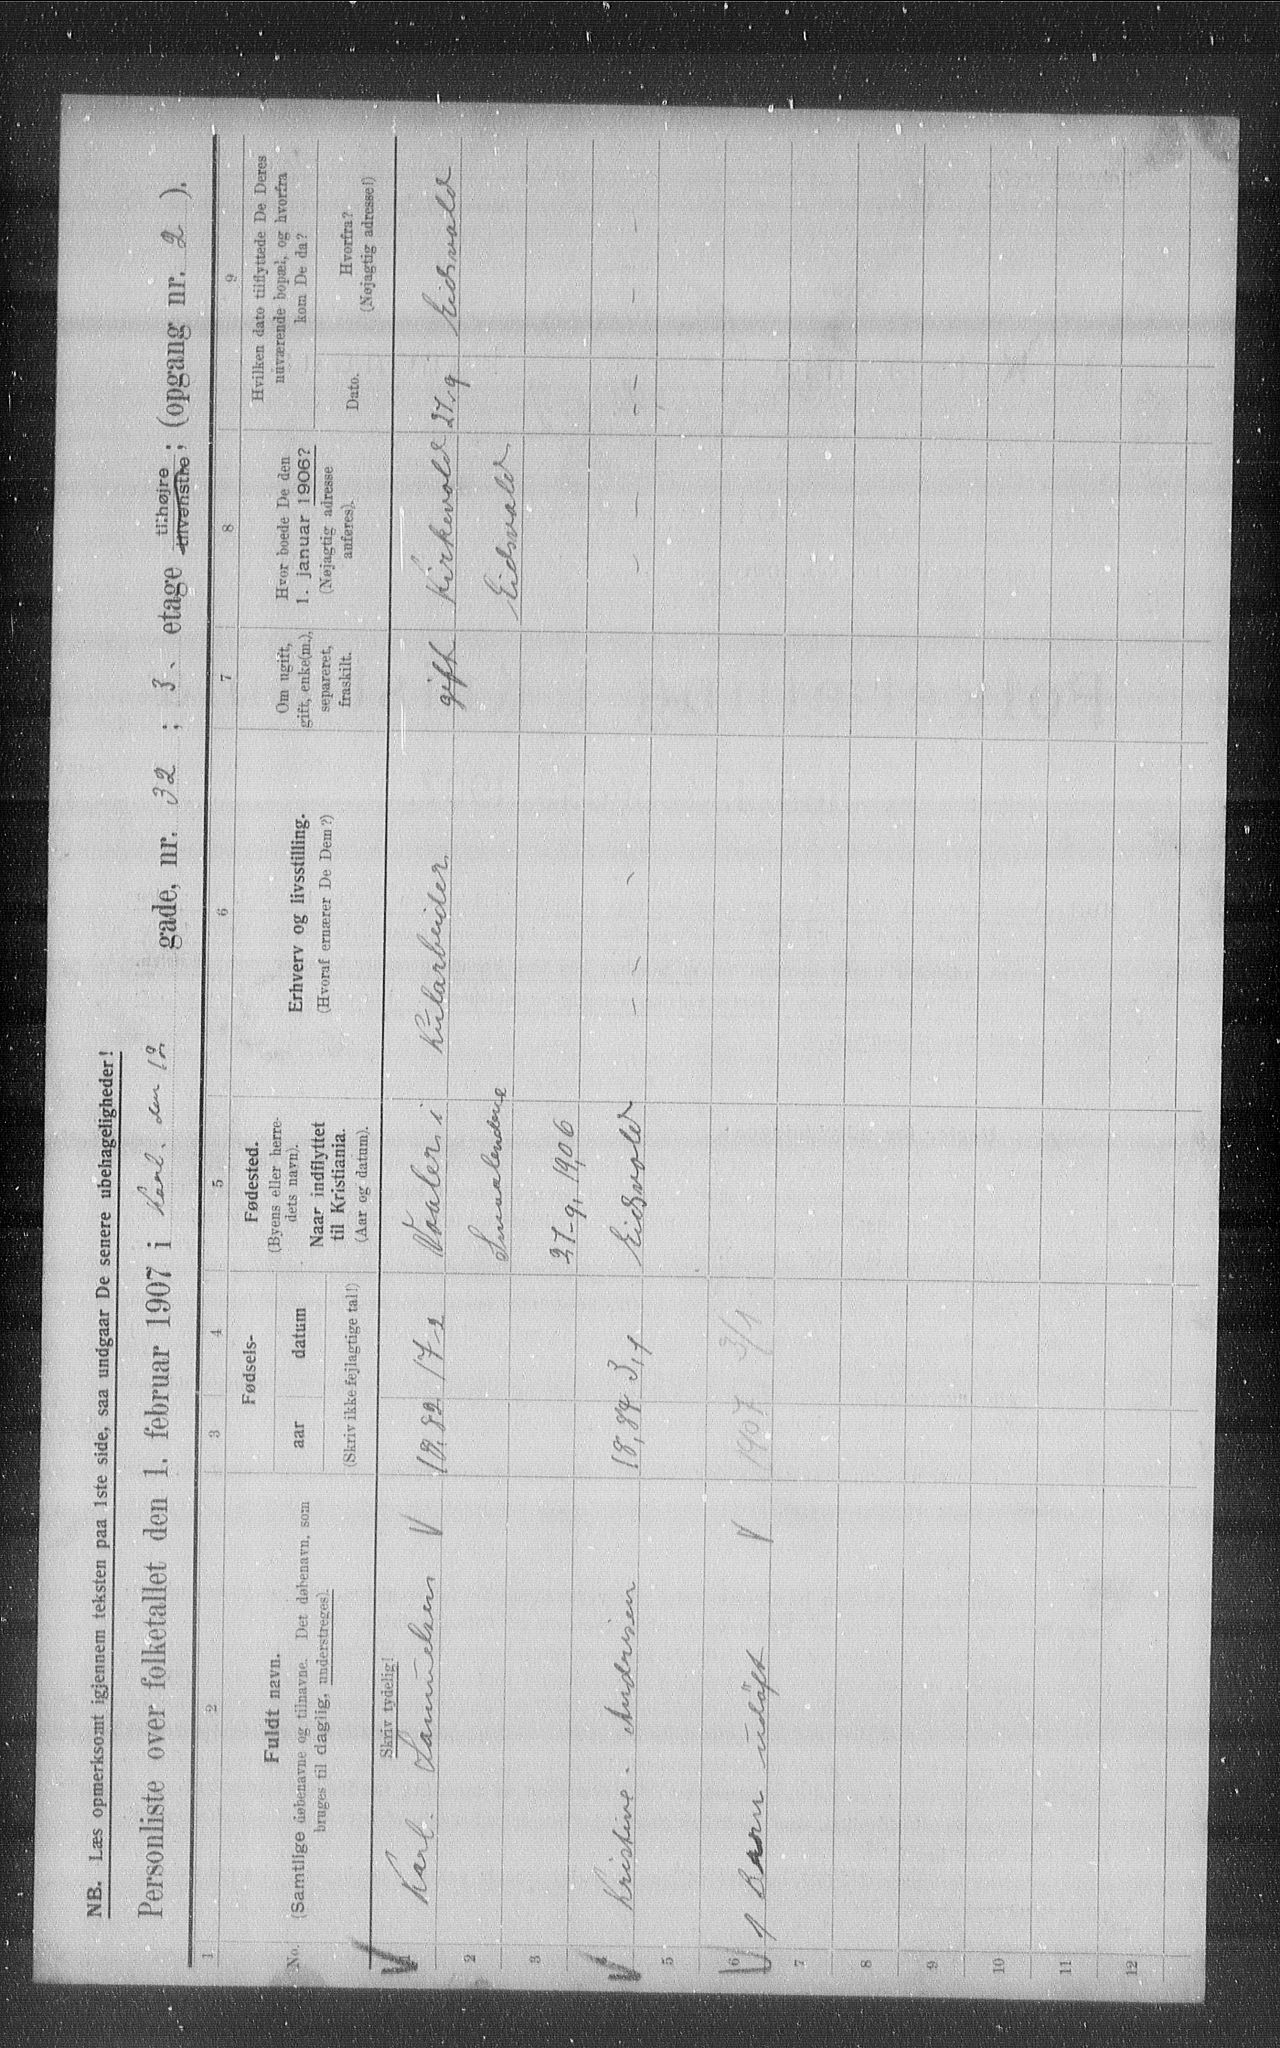 NB. Læs opmerksomt igjennem teksten paa 1ste side, saa undgaar De senere ubehageligheder!
Personliste over folketallet den 1. februar 1907 i Karl. den 12 gade, nr. 32 ; 3. etage til højre tilvenstre ; (opgang nr. 2 ).
1 2 3 4 5 6 7 8 9
No.
Fuldt navn.
(Samtlige døbenavne og tilnavne. Det døbenavn, som
bruges til daglig, understreges).
Fødsels-
aar datum
(Skriv ikke fejlagtige tal!)
Fødested.
(Byens eller herre-
dets navn).
Naar indflyttet
til Kristiania.
(Aar og datum).
Erhverv og livsstilling.
(Hvoraf ernærer De Dem?)
Om ugift,
gift, enke(m.),
separeret,
fraskilt.
Hvor boede De den
1. januar 1906?
(Nøjagtig adresse
anføres).
Hvilken dato tilflyttede De Deres
nuværende bopæl, og hvorfra
kom De da?
Dato.
Hvorfra?
(Nøjagtig adresse!)
Skriv tydelig!
V 1 Karl. Samuelsen V 18,82 17-2 Vaaler i Kularbeider gift Kirkevold 27,9 Eidsvold
2 Smaalenene Eidsvold
3 27-9, 1906
V 4 Kristine - Andrisen 18,84 3,1 Eidsvold - - - - - - - - - - -
5
V 6 1 Barn udöft V 1907 3/1
7
8
9
10
11
12